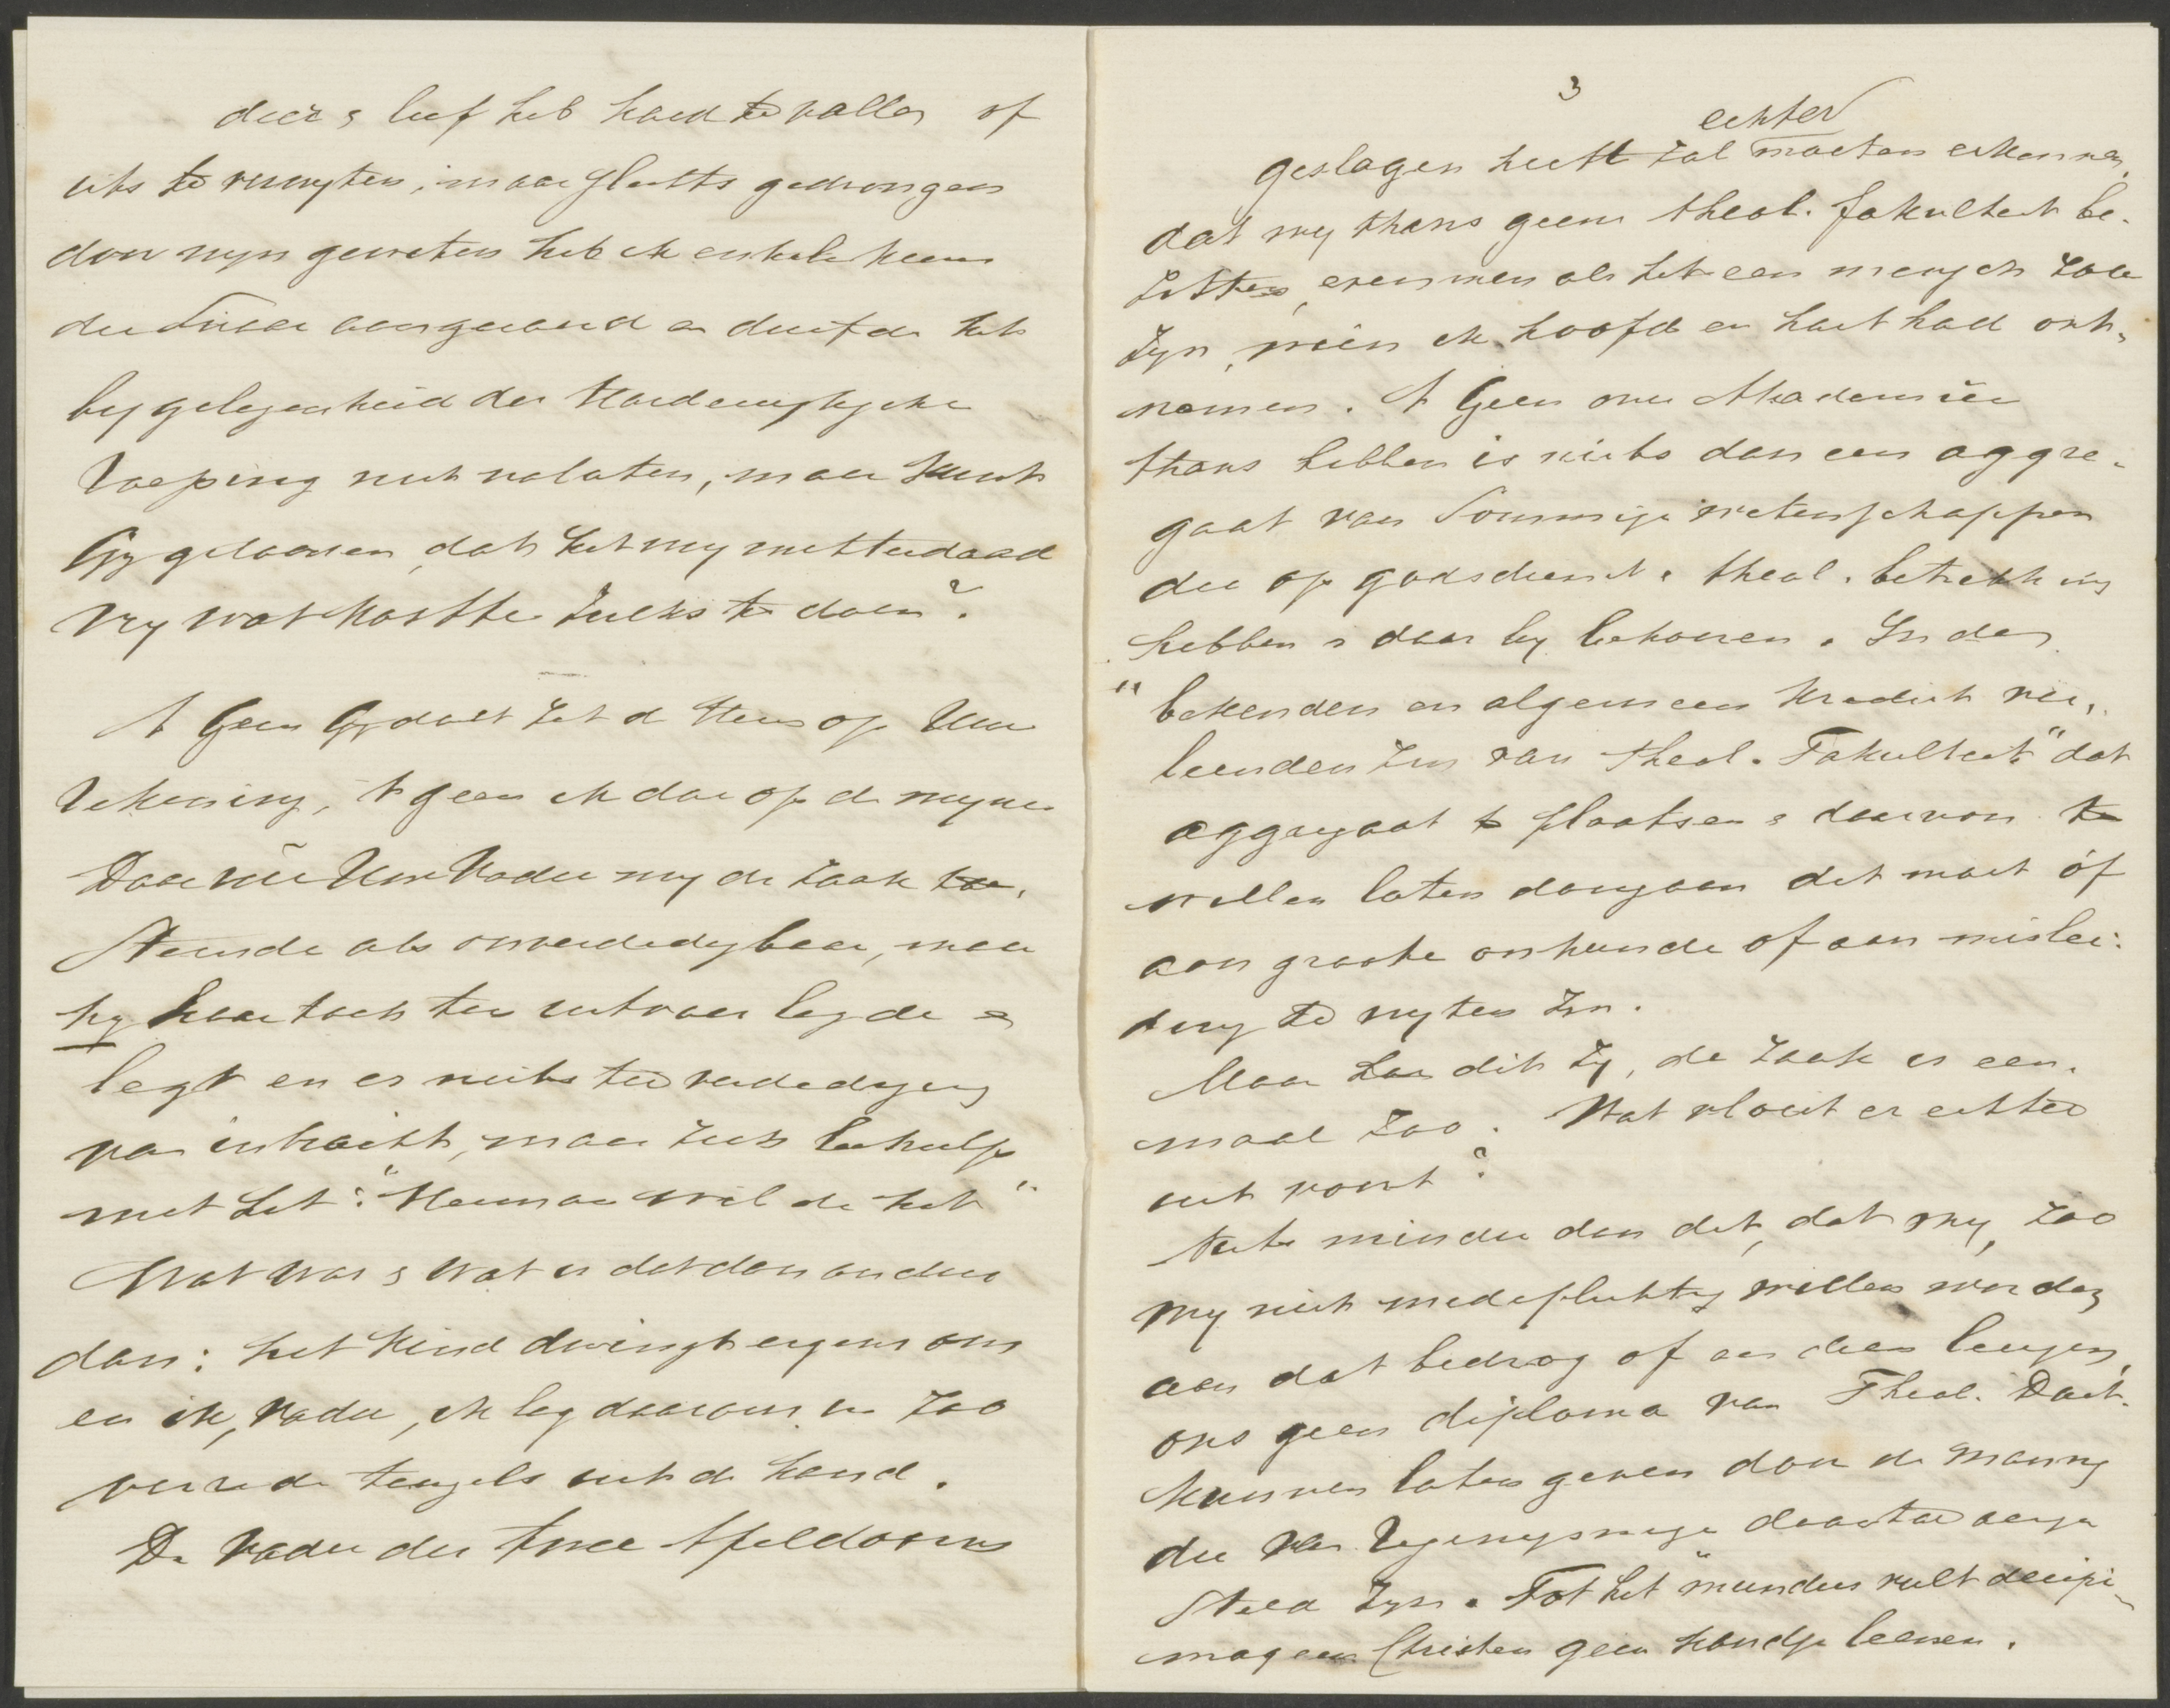 die & lief heb hard te vallen of
iets te verwyten; maar slechts gedrongen
door myn geweten heb ik enkele keeren
die snaar aangeroerd en durfde het
by gelegenheid der
roeping niet nalaten, maar kunt
Gy gelooven, dat het my metterdaad
vry wat kostte zulks te doen?
't Geen Gy doet zet de Heer op Uwe
rekening, 't geen ik doe op de myne
Daar nu Uw Vader my de zaak toe-
stemde als onverdedigbaar, maar
hy haar toch ten uitvoer legde &
legt en er niets ter verdediging
van inbracht, maar zich behielp
met het: "Herman wilde het"
Wat was & wat is dat dan anders
dan: het kind dwingt ergens om
en ik, vader, ik leg daarom in zoo
verre de teugels uit de hand.
De Vader der twee Apeldoorns
3
echter
geslagen heeft zal moeten erkennen,
dat wy thans geene theol. fakulteit be-
zitten, evenmin als het een mensch zou
zyn, wien ik hoofd en hart had ont-
nomen. 't Geen onze Akademiën
thans hebben is niets dan een aggre-
gaat van sommige wetenschappen
die op godsdienst & theol. betrekking
hebben & daar by behooren. In den
"bekenden en algemeen krediet ver-
leenden zin van theol. Fakulteit" dat
aggregaat te plaatsen & daarvon te
willen laten doorgaan dit moet óf
aan groote onkunde of aan mislei-
ding te wyten zyn.
Maar hoe dit zy, de zaak is een-
maal zoo. Wat vloeit er echter
uit voort?
Niets minder dan dit, dat wy, zoo
wy niet medeplichtig willen worden
aan dat bedrog of aan dien leugen,
ons geen diploma van Theol. Doct.
kunnen laten geven door de mannen
die van regeringswege daartoe aange
steld zyn. Tot het "mundus vult decipi"
mag een Christen geen handje leenen.